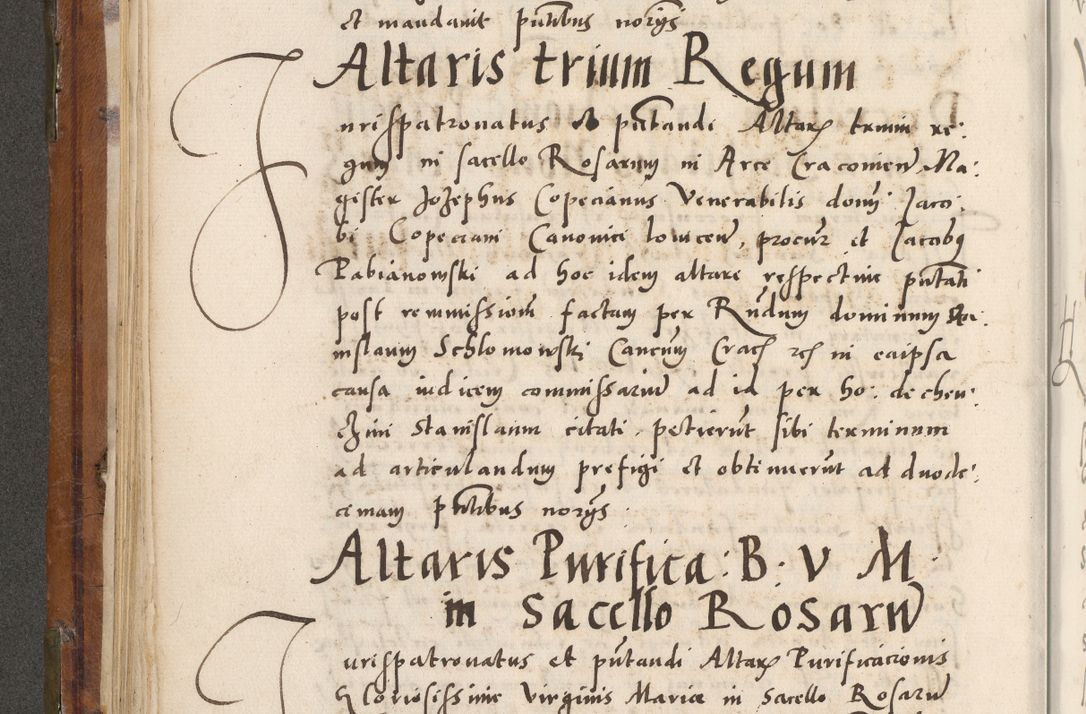 et mandavit pñtibus norÿs
Altaris trium Regum
Jurispatronatus et pñtandi Altarꝫ trium re:
gum in sacello Rosarum in Arce Cracovien Ma:
gister Josephus Copecianus Venerabilis domi Jaco:
bi Copeciani Canonici lovicen, procur et Jacobꝯ
Pabianowski ad hoc idem altare respective pñtati
post remissionem factam per Rñdum dominum Sta:
nislaum Schlomowski Cancrum Crac etc in eaipsa
causa iudicem commissarium ad id per ho: de chen:
chini Stanislaum citati petierũt sibi terminum
ad articulandum prefigi et obtinuerũt ad duode:
cimam pñtibus norÿs
Altaris Purifica: B: V M
in Sacello Rosaru
Jurispatronatus et pñtandi Altarꝫ Purificacionis
Gloriosissime Virginis Marie in sacello Rosaru